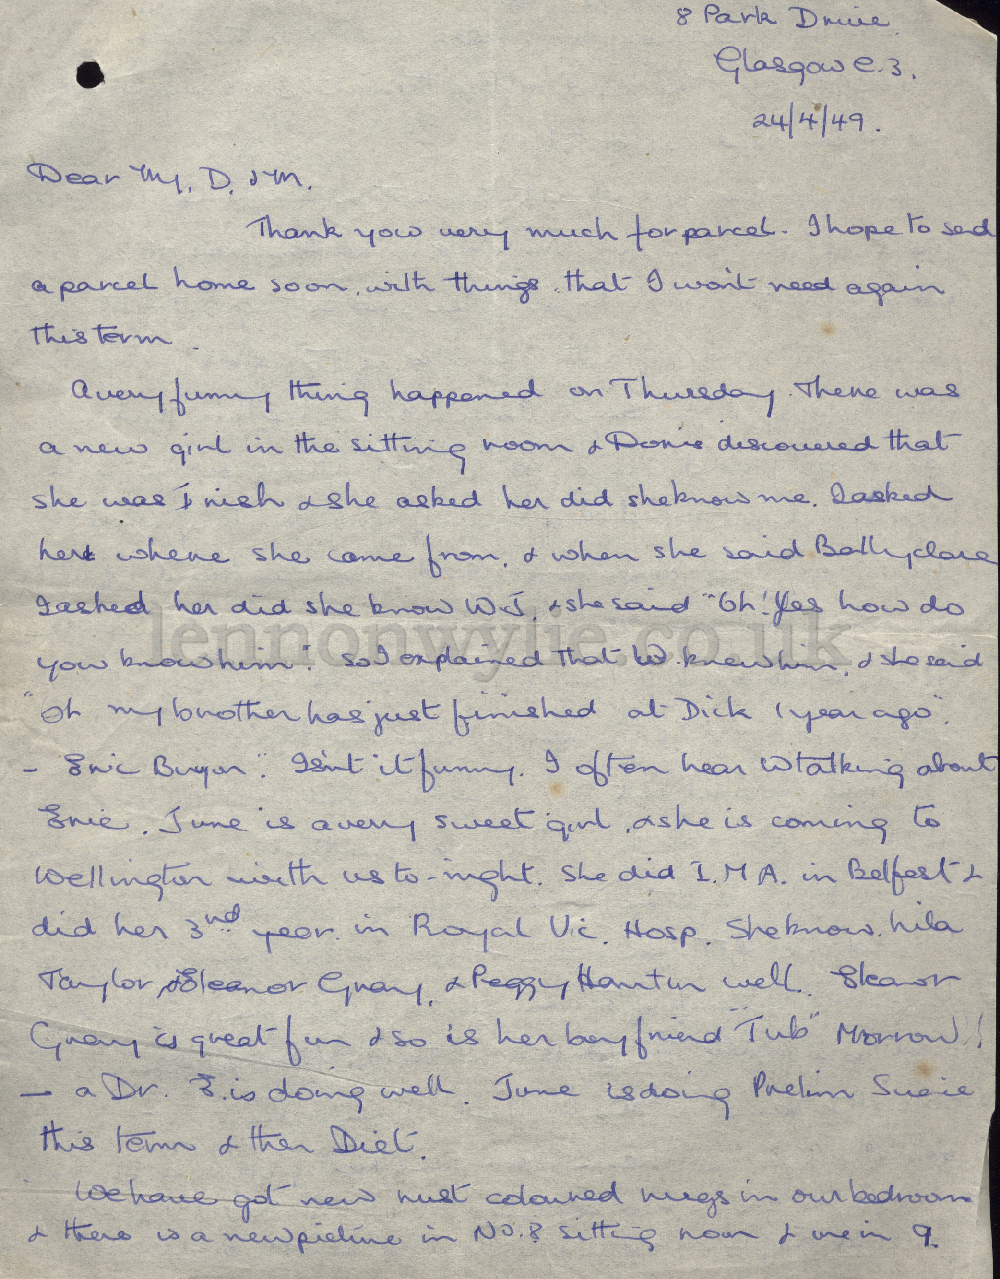 8 Park Drive
Glasgow C.3.
24/4/49.
Dear My, D. & M.
Thank you very much for parcel. I hope to send
a parcel home soon, with things that I won't need again
this term.
A very funny thing happened on Thursday. There was
a new girl in the sitting room & discovered that
she was Irish & she asked her did she know me. I asked
her where she came from, & when she said Ballyclare
I asked her did she know W.J. & she said "Oh! Yes how do
you know him". So I explained that W. knew him, & she said
"Oh my brother has just finished at Dick 1 year ago".
- Eric ". Isn't it funny. I often hear W talking about
Eric. June is a very sweet girl, & she is coming to
Wellington with us to-night. She did I.M.A. in Belfast &
did her 3rd year in Royal Vic. Hosp. She knows
Taylor, & Eleanor Gray, & Peggy well. Eleanor
Gray is great fun & so is her boyfriend "Tub" Morrow!
- a Dr. E. is doing well. June is doing Prelim
this term & then Diet.
We have got new rust coloured rugs in our bedroom
& there is a new picture in No. 8 sitting room & one in 9.
lennonwylie.co.uk